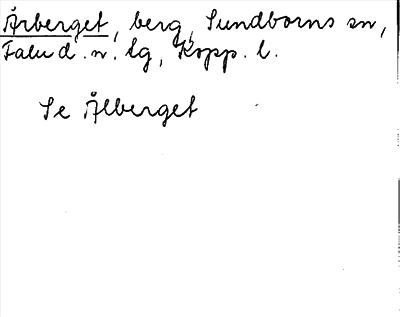 Årberget, berg, Sundborns sn,
Falu d. n. lg, Kopp. l.
Se Ålberget